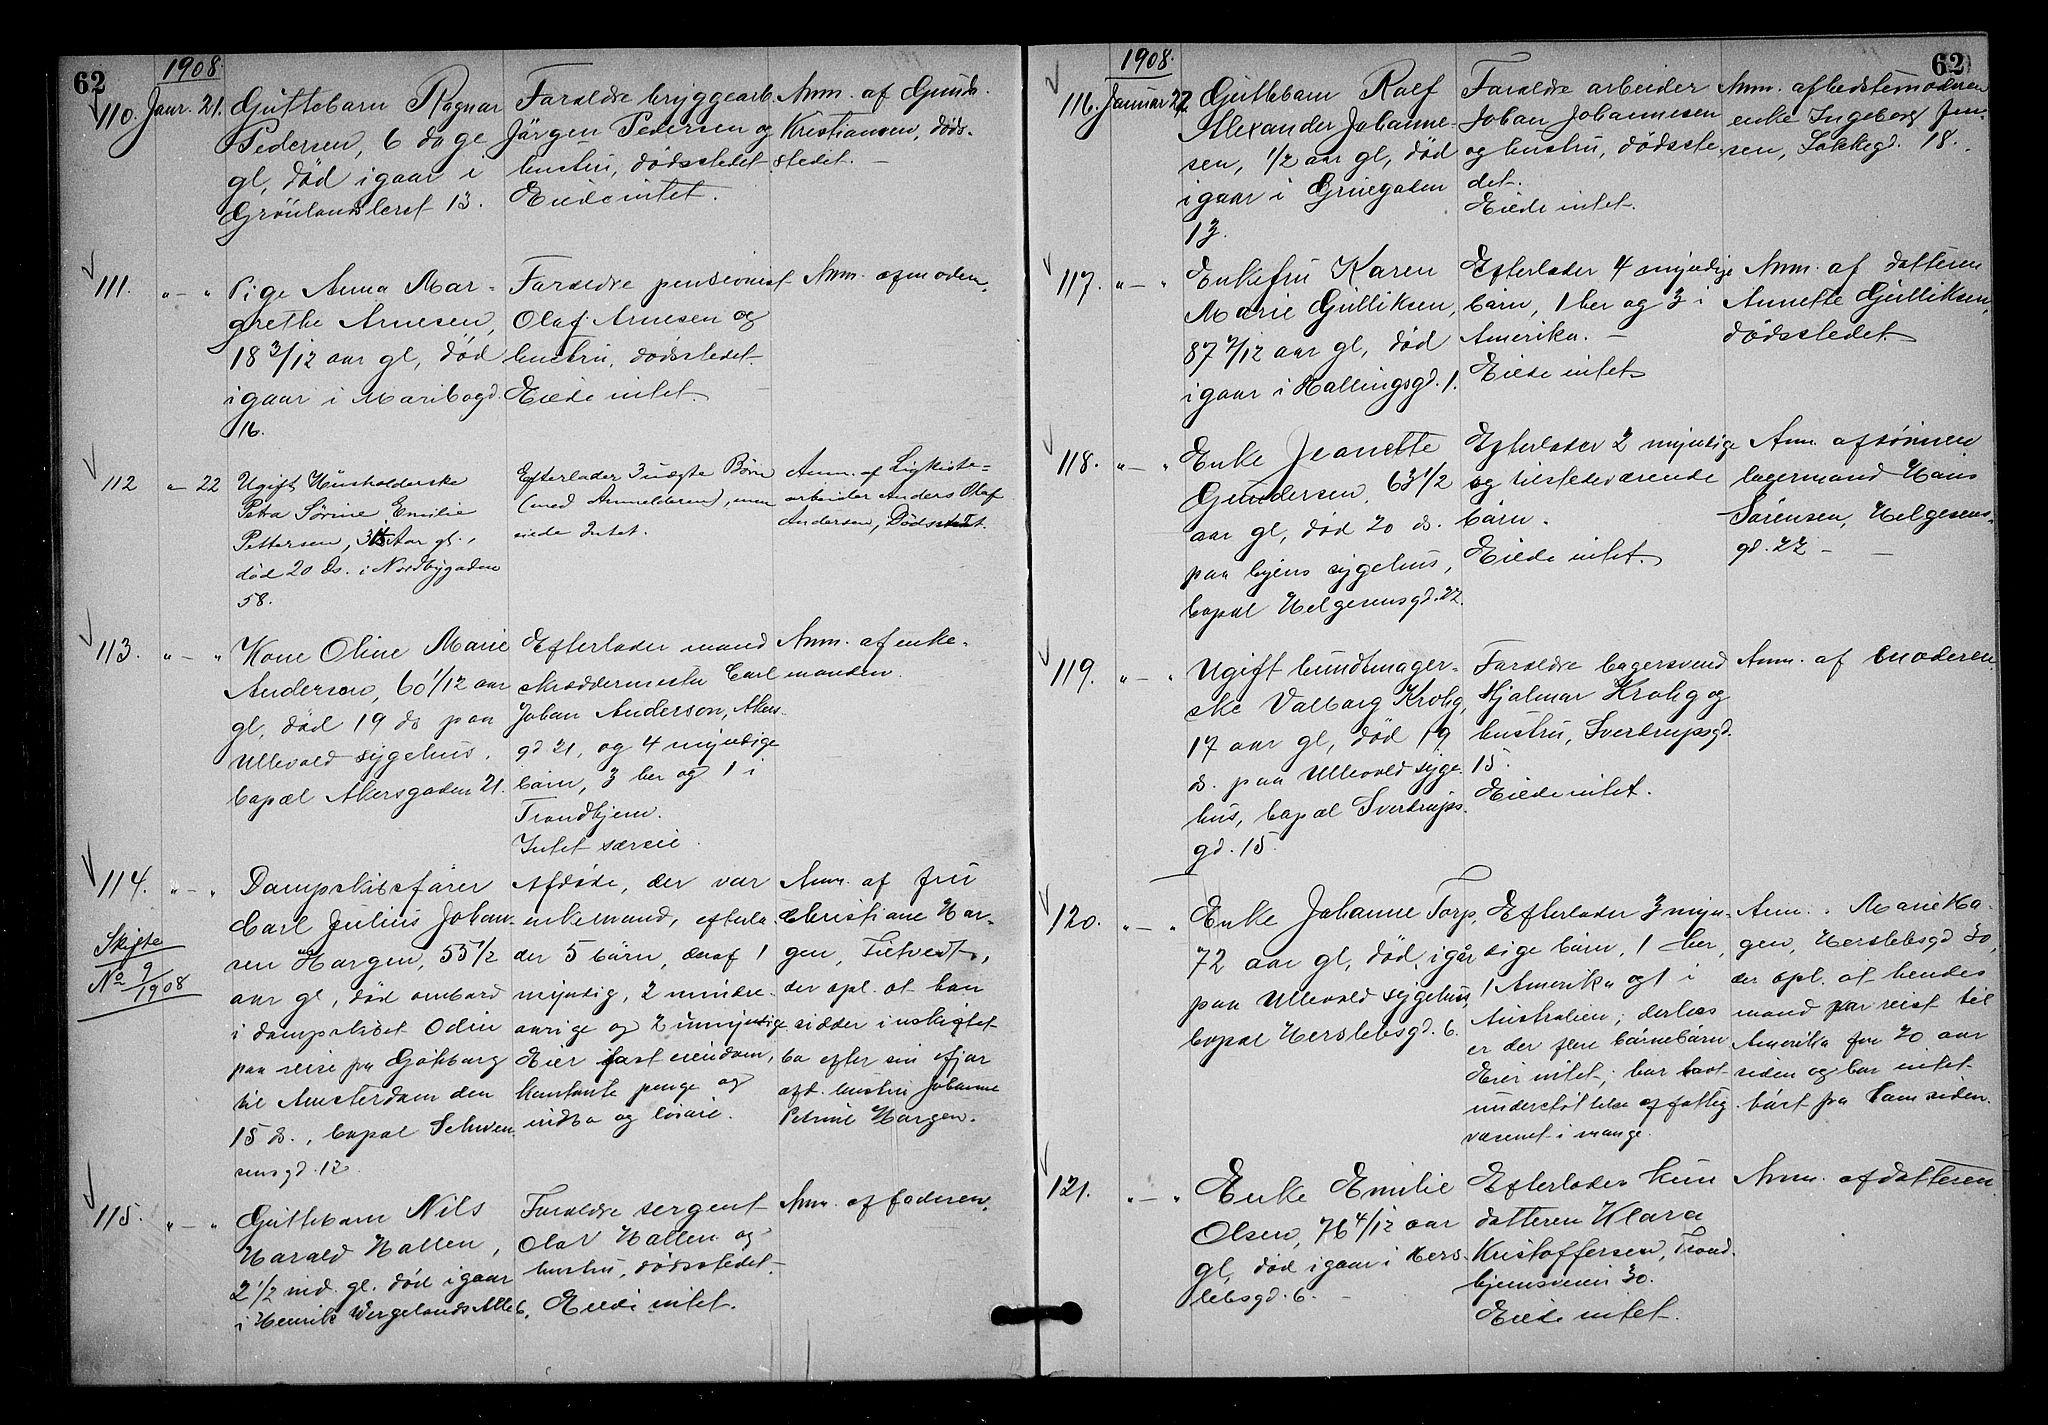 62
1908.
110. Janr. 21.
Guttebarn Ragnar
Pedersen, 6 dage
gl, död igaar i
Grönlandsleret 13.
Foreldre bryggearb.
Jörgen Pedersen og
hustru, dödsstedet.
Eiede intet.
Anm. af Gunh.
Kristiansen, döds-
stedet. -
111. " - "
Pige Anna Mar-
grethe Arnesen,
18 3/12 aar gl, död
igaar i Maribogd.
16.
Foreldre pensionist
Olaf Arnesen og
hustru, dödsstedet.
Eiede intet.
Anm. af moderen.
112 " - 22
Ugift Husholderske
Petra Sörine Emilie
Pettersen, Aar gl.,
död 20 ds. i Nordbygaden
58.
Efterlader 3 uægte Börn
(med Anmelderen), men
eiede Intet.
Anm. af Ligkiste-
arbeider Anders Olaf
Andersen, Dödsstedet.
113. " - "
Kone Oline Marie
Anderson, 60 1/12 aar
gl, död 19 ds paa
Ullevold sygehus.
bopæl Akersgaden 21.
Efterlader mand
skræddermester Carl
Johan Anderson, Akers-
gd 21, og 4 myndige
börn, 3 her og 1 i
Trondhjem.
Intet særeie.
Anm. af enke-
manden.
114. " - "
Skifte
No 9/1908
Dampskibsförer
Carl Julius Johan-
sen Hargen, 55 1/2
aar gl, död ombord
i dampskibet Odin
paa reise fra Göteborg
til Amsterdam den
15 ds., bopæl Schwen-
sensgd. 12.
Afdöde, der var
enkemand, efterla-
der 5 börn, deraf 1
myndig, 2 mindre-
aarige og 2 umyndige
Eier fast eiendom,
kontante penge og
indbo og lösöre.
Anm. af fru
Christiane Har-
gen, Tietvedt,
der opl. at han
sidder i uskiftet
bo efter sin ifjor
afd. hustru Johanne
Petrine Hargen.
115. " - "
Guttebarn Nils
Harald Hallen,
2 1/2 md. gl. död igaar
i Henrik Wergelands Alle 6.
Foreldre sergent
Olav Hallen og
hustru, dödsstedet.
Eiede intet.
Anm. af faderen.
62
1908.
116. Januar 22
Guttebarn Rolf
Alexander Johanne-
sen, 1/2 aar gl, död
igaar i Gruegaden
13.
Foreldre arbeider
Johan Johannesen
og hustru, dödsste-
det.
Eiede intet.
Anm. af bedstemoderen
enke Ingeborg Jen-
sen, Lakkegd. 18.
117. " - "
Enkefru Karen
Marie Gulliksen,
87 7/12 aar gl, död
igaar i Hallingsgd. 1.
Efterlader 4 myndige
börn, 1 her og 3 i
Amerika. -
Eiede intet.
Anm. af datteren
Annette Gulliksen,
dödsstedet.
118. " - "
Enke Jeanette
Gundersen, 63 1/2
aar gl, död 20 ds.
paa byens sygehus,
bopæl Helgesensgd. 22.
Efterlader 2 myndige
og tilstedeværende
börn.
Eiede intet.
Anm. af sönnen
lagermand Hans
Sörensen, Helgesens-
gd. 22 -
119. " - "
Ugift bundtmager-
ske Valborg Krohg,
17 aar gl, död 19
ds. paa Ullevold syge-
hus, bopæl Sverdrups-
gd. 15.
Foreldre bagersvend
Hjalmar Krohg og
hustru, Sverdrupsgd.
15.
Eiede intet.
Anm. af moderen
120. " - "
Enke Johanne Torp,
72 aar gl, död igår
paa Ullevold sygehus,
bopæl Herslebsgd. 6.
Efterlader 3 myn-
dige börn, 1 her,
1 Amerika og 1 i
Australien; derhos
er der flere börnebörn
Eier intet; har havt
understöttelse af fattig-
væsenet i mange.
Anm. Marie Ha-
gen, Herslebsgd 30,
der opl. at hendes
mand har reist til
Amerika for 20 aar
siden og har intet
hört fra ham siden.
121. " - "
Enke Emilie
Olsen, 76 4/12 aar
gl, död igaar i Hers-
lebsgd. 6. -
Efterlader kun
datteren Klara
Kristoffersen, Trond-
hjemsveien 30.
Eiede intet.
Anm. af datteren